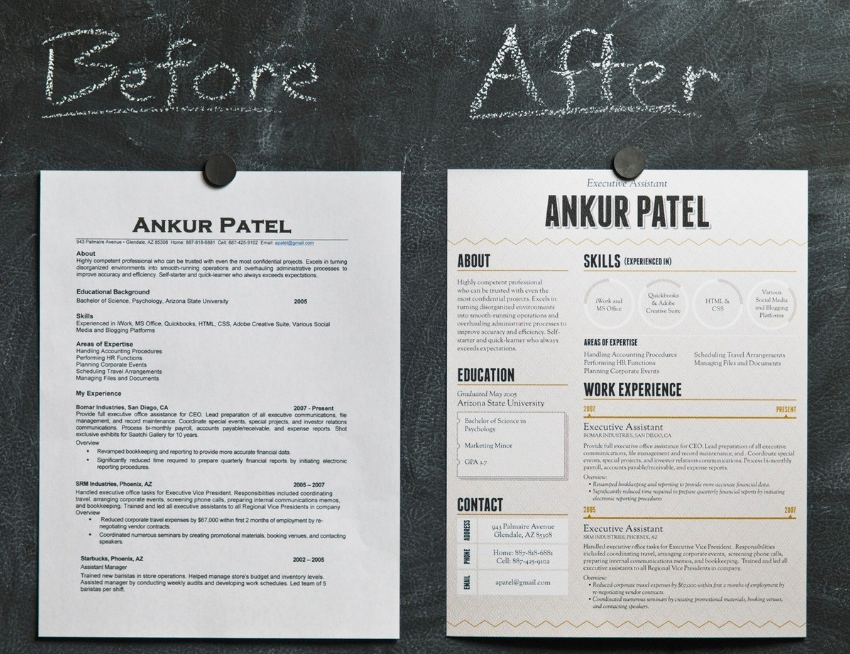 Before
ANKUR PATEL
943 Palmaire Avenue • Glendale, AZ 85308 Home: 887-818-6881 Cell: 887-425-9102 Email: apatel@gmail.com
About
Highly competent professional who can be trusted with even the most confidential projects. Excels in turning
disorganized environments into smooth-running operations and overhauling administrative processes to
improve accuracy and efficiency. Self-starter and quick-learner who always exceeds expectations.
Educational Background
Bachelor of Science, Psychology, Arizona State University 2005
Skills
Experienced in iWork, MS Office, Quickbooks, HTML, CSS, Adobe Creative Suite, Various Social
Media and Blogging Platforms
Areas of Expertise
Handling Accounting Procedures
Performing HR Functions
Planning Corporate Events
Scheduling Travel Arrangements
Managing Files and Documents
My Experience
Bomar Industries, San Diego, CA 2007 - Present
Provide full executive office assistance for CEO. Lead preparation of all executive communications, file
management, and record maintenance. Coordinate events, special projects, and investor relations
communications. Process bi-monthly payroll, accounts payable/receivable, and expense reports. Shot
exclusive exhibits for Saatchi Gallery for 10 years.
Overview
• Revamped bookkeeping and reporting to provide more accurate financial data.
• Significantly reduced time required to prepare quarterly financial reports by initiating electronic
reporting procedures.
SRM Industries, Phoenix, AZ 2005 – 2007
Handled executive office tasks for Executive Vice President. Responsibilities included coordinating
travel, arranging corporate events, screening phone calls, preparing internal communications, memos,
and bookkeeping. Trained and led all executive assistants to all Regional Vice Presidents in company
Overview
• Reduced corporate travel expenses by $67,000 within first 2 months of employment by re-
negotiating vendor contracts.
• Coordinated numerous seminars by creating promotional materials, booking venues, and contacting
speakers.
Starbucks, Phoenix, AZ 2002 – 2005
Assistant Manager
Trained new baristas in store operations. Helped manage store's budget and inventory levels.
Assisted manager by conducting weekly audits and developing work schedules. Led team of 5
baristas per shift.
After
Executive Assistant
ANKUR PATEL
ABOUT
Highly competent professional
who can be trusted with even the
most confidential projects. Excels in
turning disorganized environments
into smooth-running operations and
overhauling administrative processes to
improve accuracy and efficiency. Self-
starter and quick-learner who always
exceeds expectations.
EDUCATION
Graduated May 2005
Arizona State University
Bachelor of Science in
Psychology
Marketing Minor
GPA 3.7
CONTACT
ADDRESS
943 Palmaire Avenue
Glendale, AZ 85308
PHONE
Home: 887-818-6881
Cell: 887-425-9102
EMAIL
apatel@gmail.com
SKILLS (EXPERIENCED IN)
iWork and
MS Office
Quickbooks
& Adobe
Creative Suite
HTML &
CSS
Various
Social Media
and Blogging
Platforms
AREAS OF EXPERTISE
Handling Accounting Procedures
Performing HR Functions
Planning Corporate Events
Scheduling Travel Arrangements
Managing Files and Documents
WORK EXPERIENCE
2007 PRESENT
Executive Assistant
BOMAR INDUSTRIES, SAN DIEGO, CA
Provide full executive office assistance for CEO. Lead preparation of all executive
communications, file management and record maintenance, and. Coordinate special
events, special projects, and investor relations communications. Process bi-monthly
payroll, accounts payable/receivable, and expense reports.
Overview:
• Revamped bookkeeping and reporting to provide more accurate financial data.
• Significantly reduced time required to prepare quarterly financial reports by initiating
electronic reporting procedures
2005 2007
Executive Assistant
SRM INDUSTRIES, PHOENIX, AZ
Handled executive office tasks for Executive Vice President. Responsibilities
included coordinating travel, arranging corporate events, screening phone calls,
preparing internal communications, memos, and bookkeeping. Trained and led all
executive assistants to all Regional Vice Presidents in company.
Overview:
• Reduced corporate travel expenses by $67,000 within first 2 months of employment by
re-negotiating vendor contracts.
• Coordinated numerous seminars by creating promotional materials, booking venues,
and contacting speakers.